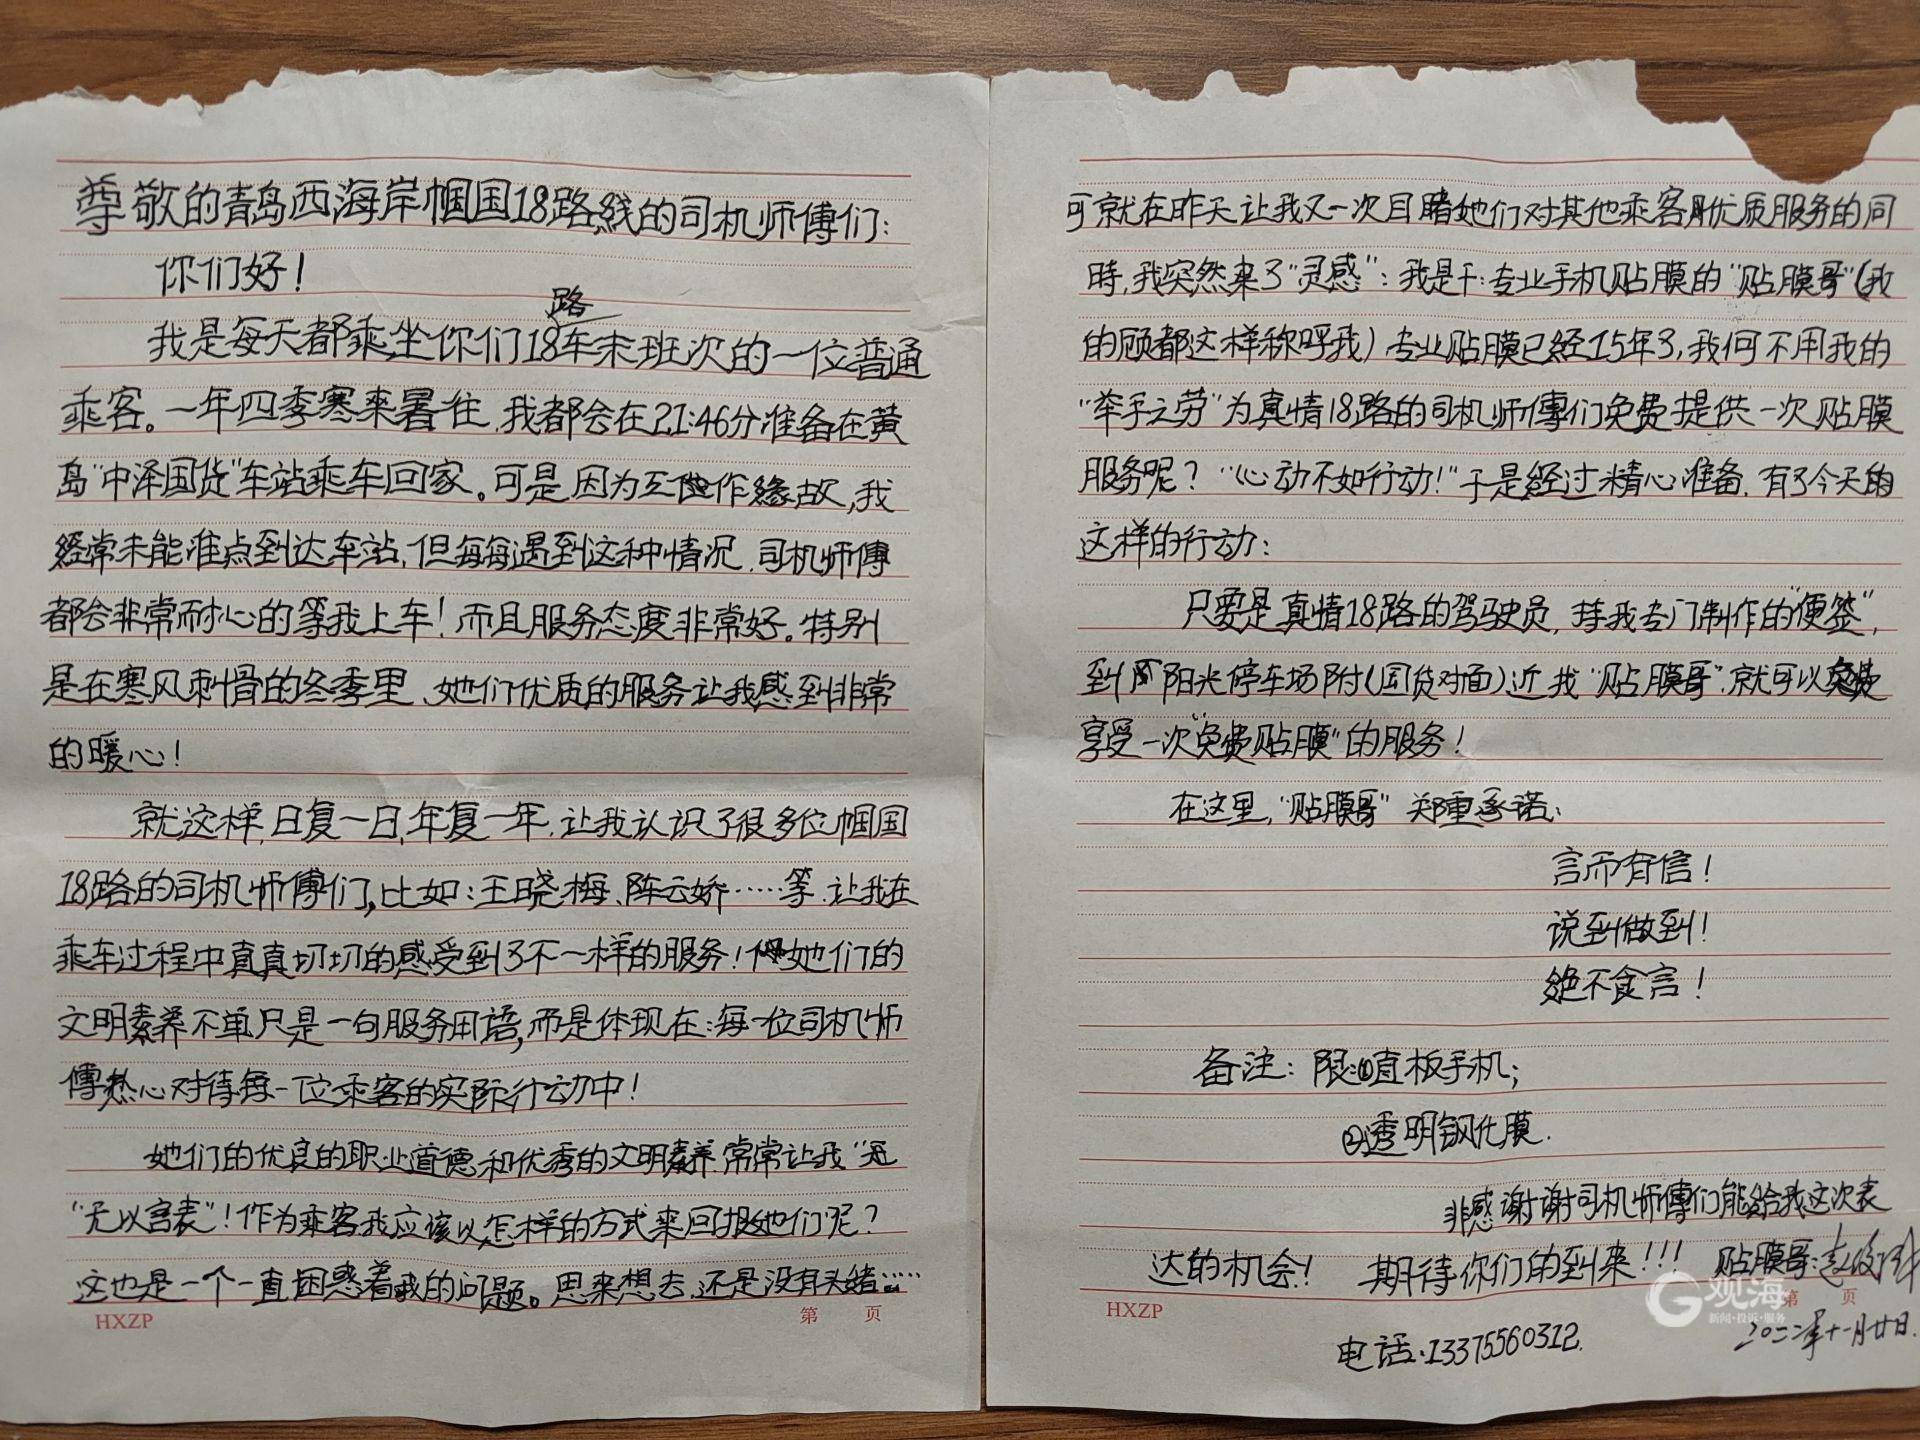 尊敬的青岛西海岸帼国18路线的司机师傅们:
你们好!
路
我是每天都乘坐你们18车末班次的一位普通
乘客。一年四季寒来暑往,我都会在21:46分准备在黄
岛"中泽国货"车站乘车回家。可是因为工作缘故,我
经常未能准点到达车站,但每每遇到这种情况,司机师傅
都会非常耐心的等我上车!而且服务态度非常好。特别
是在寒风刺骨的冬季里、她们优质的服务让我感到非常
的暖心!
就这样,日复一日,年复一年,让我认识了很多位帼国
18路的司机师傅们,比如:王晓梅、陈云娇……等,让我在
乘车过程中真真切切的感受到了不一样的服务!她们的
文明素养不单只是一句服务用语,而是体现在:每一位司机师
傅热心对待每一位乘客的实际行动中!
她们的优良的职业道德和优秀的文明素养,常常让我"无
"无以言表"!作为乘客我应该以怎样的方式来回报她们呢?
这也是一个一直困惑着我的问题。思来想去,还是没有头绪……
HXZP
第 页
可就在昨天让我又一次目睹她们对其他乘客优质服务的同
時,我突然来了"灵感":我是干:专业手机贴膜的"贴膜哥"(我
的顾都这样称呼我)专业贴膜已经15年了,我何不用我的
"举手之劳"为真情18路的司机师傅们免费提供一次贴膜
服务呢?"心动不如行动!"于是经过精心准备,有了今天的
这样的行动:
只要是真情18路的驾驶员,持我专门制作的"便签",
到阳光停车场附(国货对面)近找"贴膜哥",就可以免费
享受一次"免费贴膜"的服务!
在这里,"贴膜哥"郑重承诺:
言而有信!
说到做到!
绝不食言!
备注:限:①直板手机;
②透明钢化膜.
非感谢谢司机师傅们能给我这次表
达的机会! 期待你们的到来!!! 贴膜哥:
HXZP
第 页
观海
新闻·投诉·服务
二〇二二年十一月廿日.
电话:13375560312.